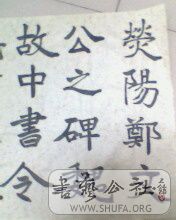 熒陽鄭文
公之碑魏
故中書令
書藝公社
WWW.SHUFA.ORG